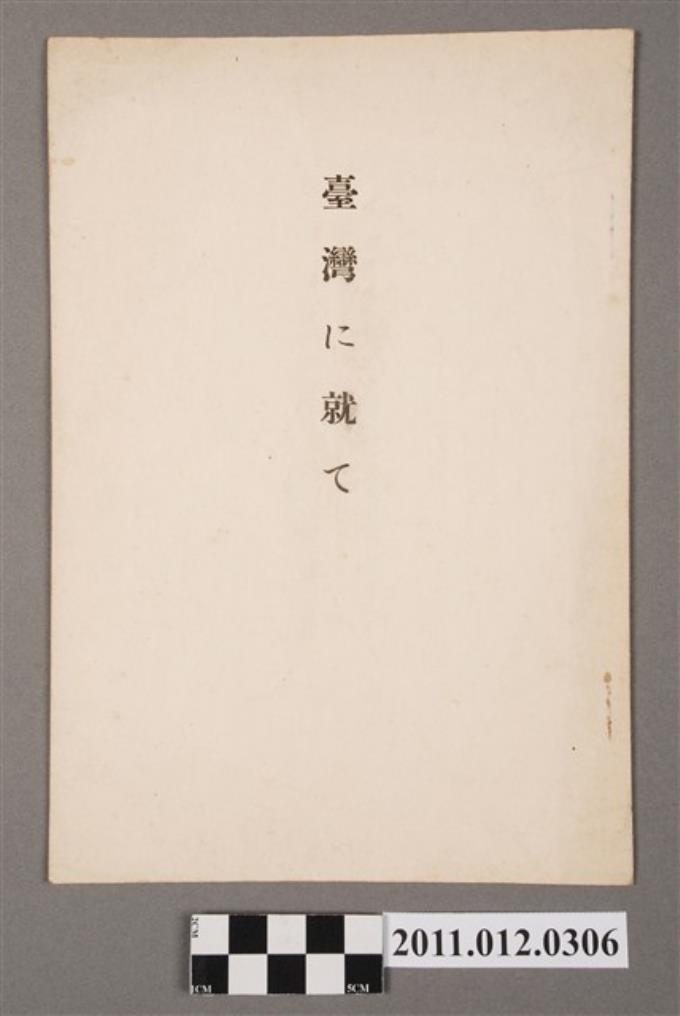 臺灣に就て
2CM
1CM 5CM
2011.012.0306